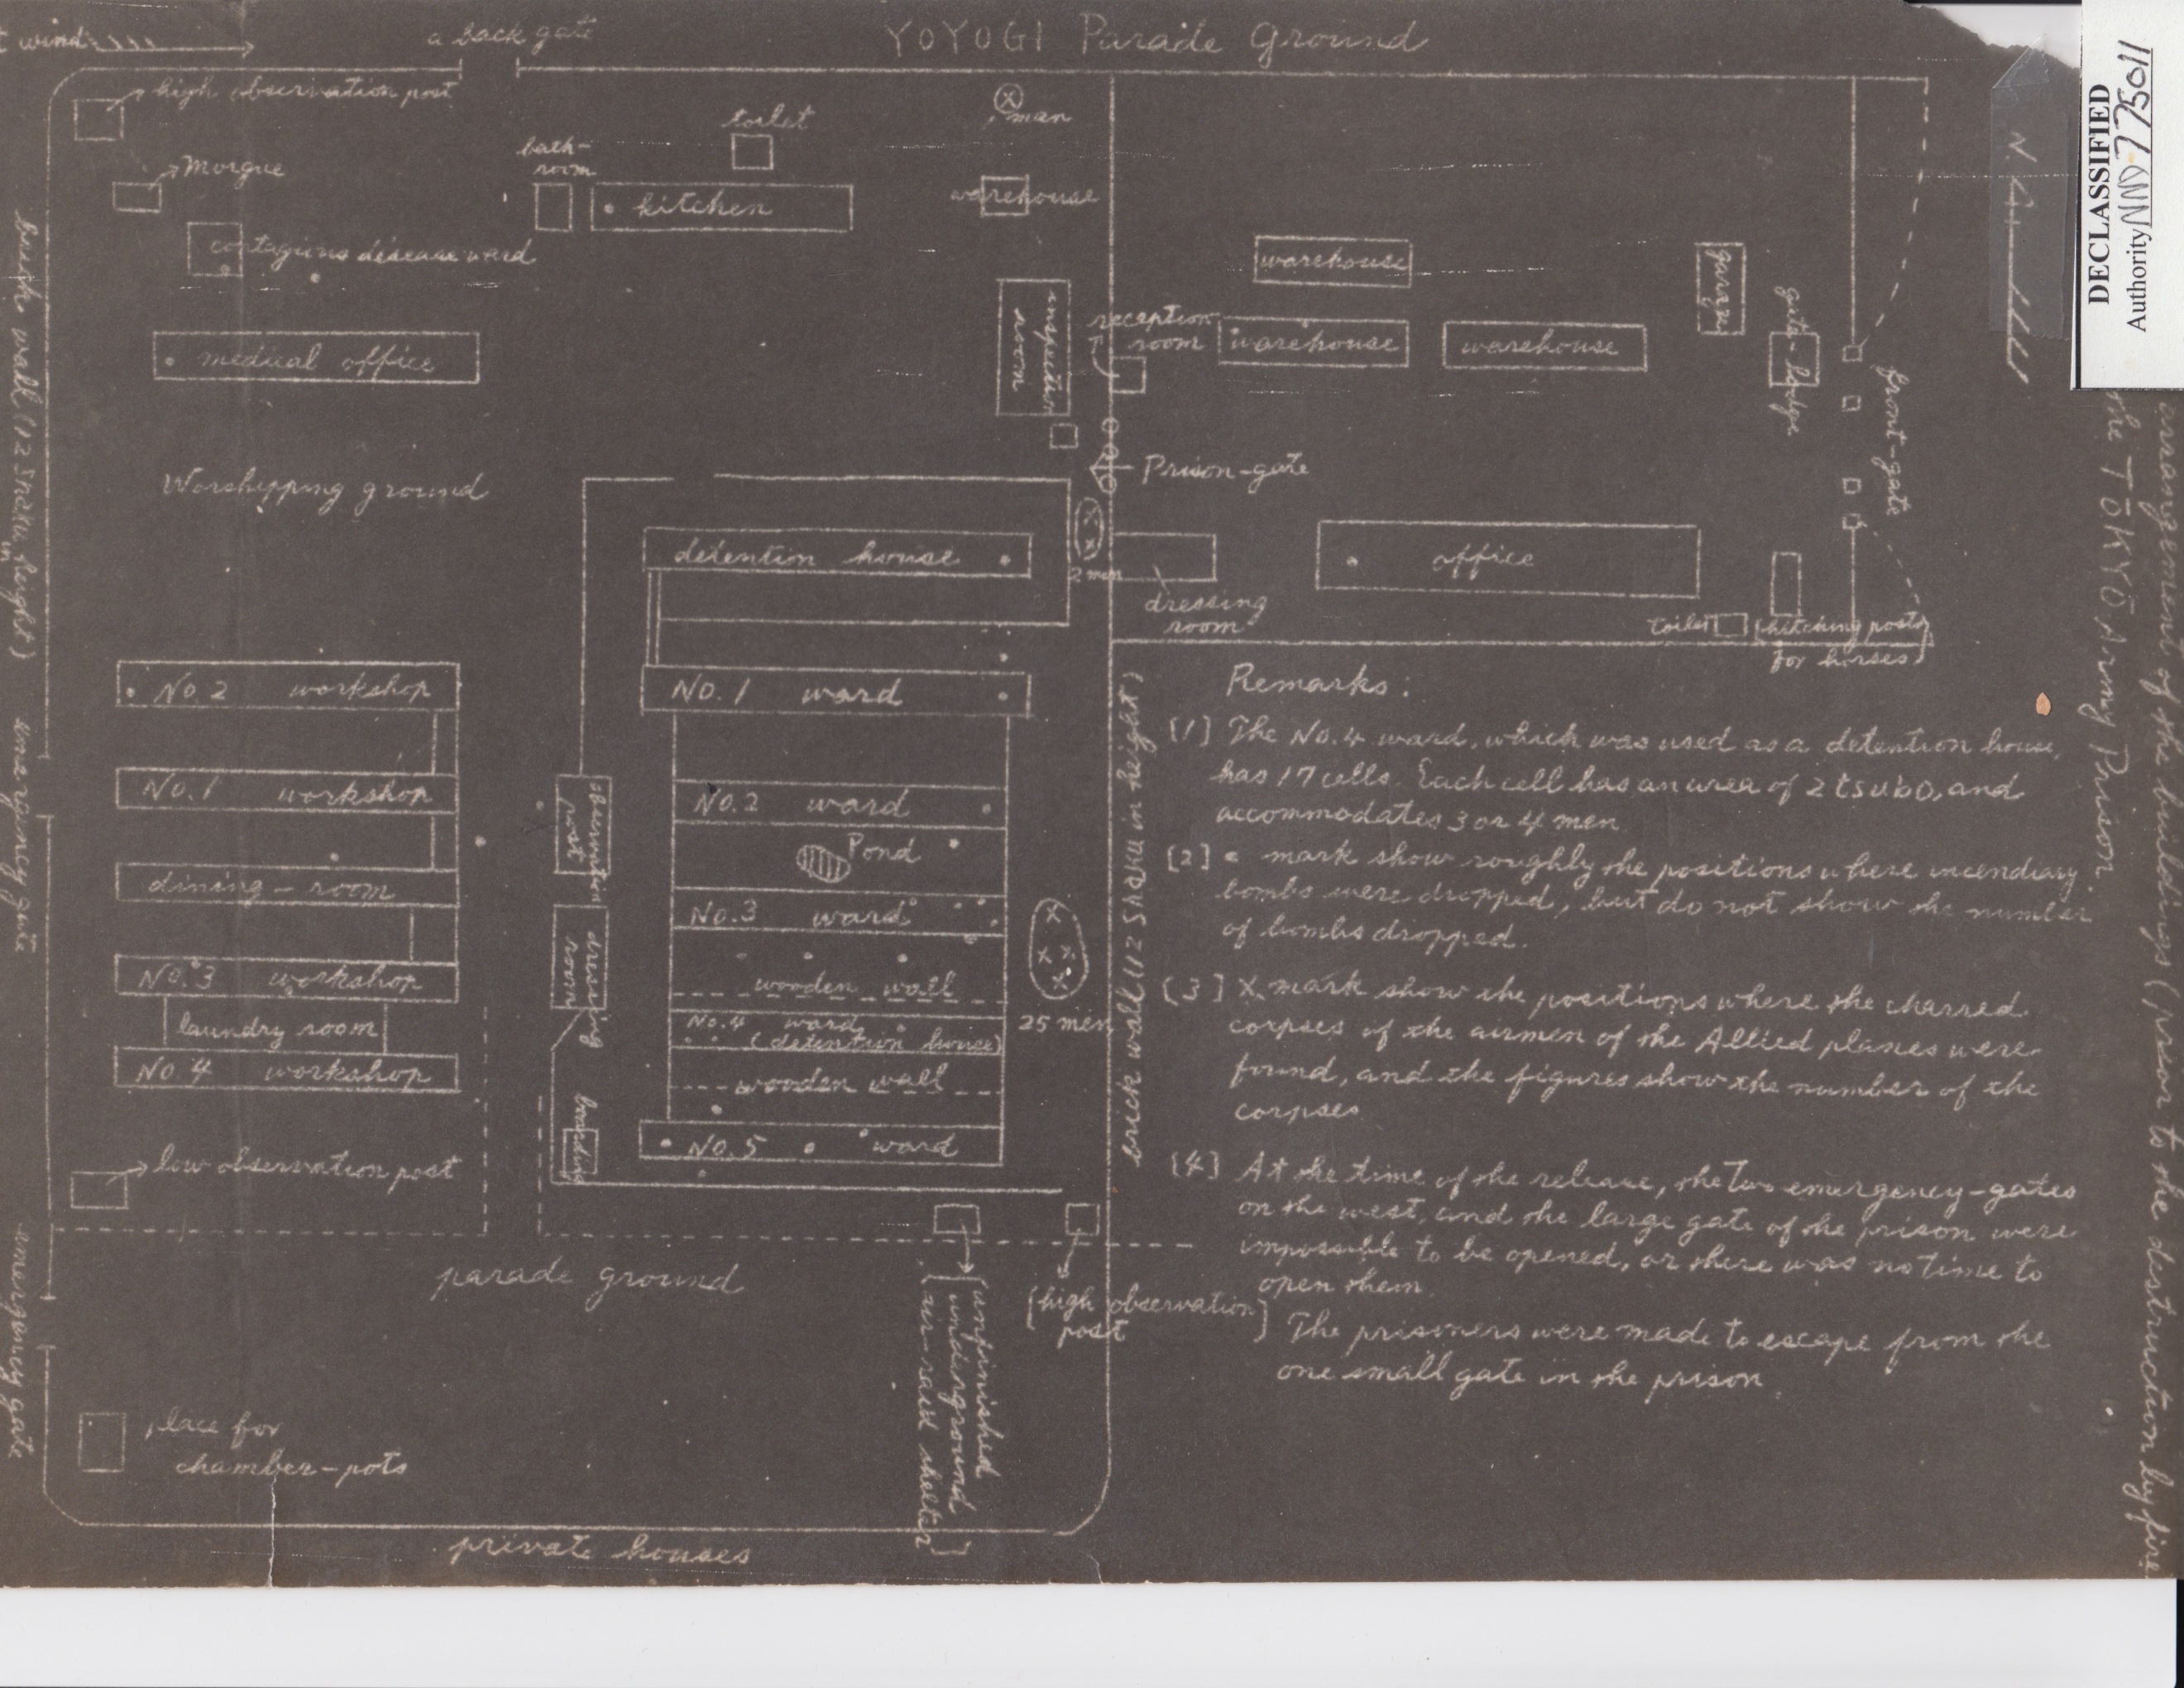 wind
a back gate
YOYOGI Parade Ground
high observation post
Morgue
contagious disease ward
medical office
bath-
room
kitchen
toilet
man
warehouse
inspection
room
reception
room
warehouse
warehouse
warehouse
garage
gate-lodge
front-gate
Prison-gate
Worshipping ground
detention house
2 men
dressing
room
office
toilet
hitching posts
for horses
brick wall (12 Shaku in height)
emergency gate
emergency gate
No. 2 workshop
No. 1 workshop
dining-room
No. 3 workshop
laundry room
No. 4 workshop
low observation post
place for
chamber-pots
observation
post
dressing
room
No. 1 ward
No. 2 ward
Pond
No. 3 ward
wooden wall
No. 4 ward
(detention house)
wooden wall
No. 5 ward
25 men
brick wall (12 Shaku in height)
parade ground
unfinished
underground
air-raid shelter
high observation
post
private houses
Remarks:
[1] The No. 4 ward, which was used as a detention house,
has 17 cells. Each cell has an area of 2 tsubo, and
accommodates 3 or 4 men.
[2] • mark show roughly the positions where incendiary
bombs were dropped, but do not show the number
of bombs dropped.
[3] X mark show the positions where the charred
corpses of the airmen of the Allied planes were
found, and the figures show the number of the
corpses
[4] At the time of the release, the two emergency-gates
on the west, and the large gate of the prison were
impossible to be opened, or there was no time to
open them.
The prisoners were made to escape from the
one small gate in the prison.
arrangement of the buildings (prior to the destruction by fire
the TŌKYŌ Army Prison.
N.
DECLASSIFIED
Authority NND 775011